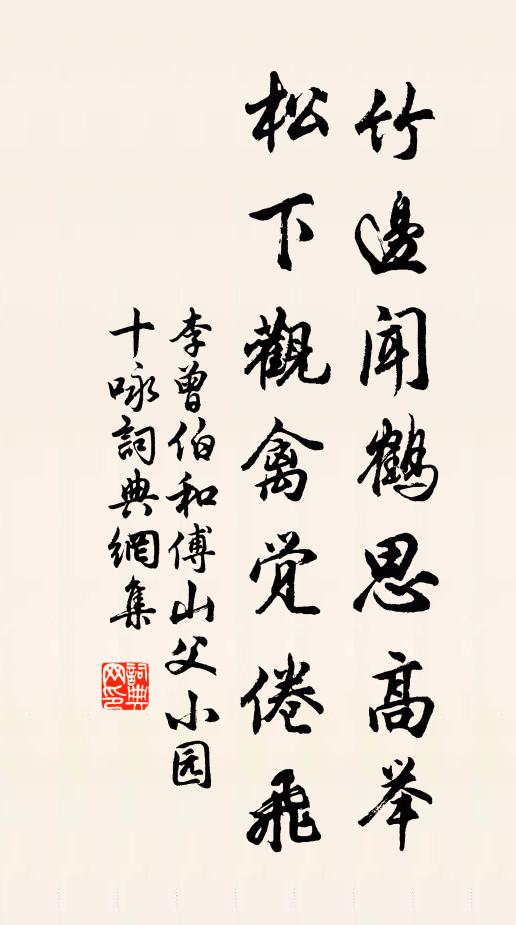 竹邊聞鶴思高举
松下觀禽觉倦飛
李曾伯和傅山父小园
十咏詞典網集
詞典网印